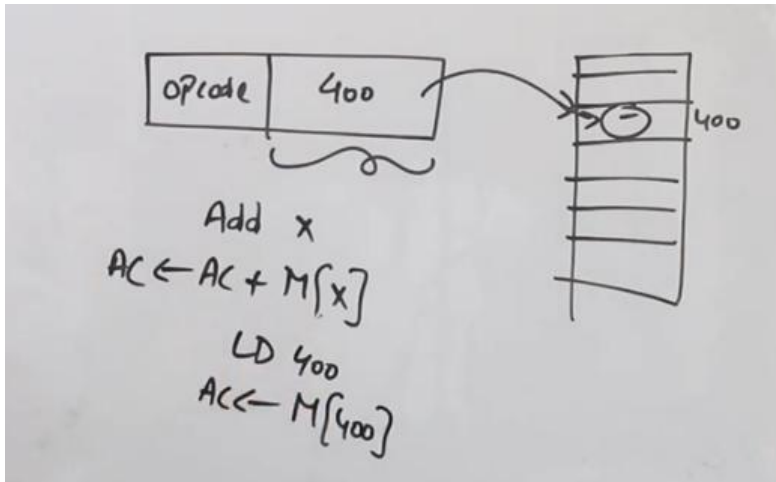 opcode 400
400
Add x
AC ← AC + M[x]
LD 400
AC ← M[400]